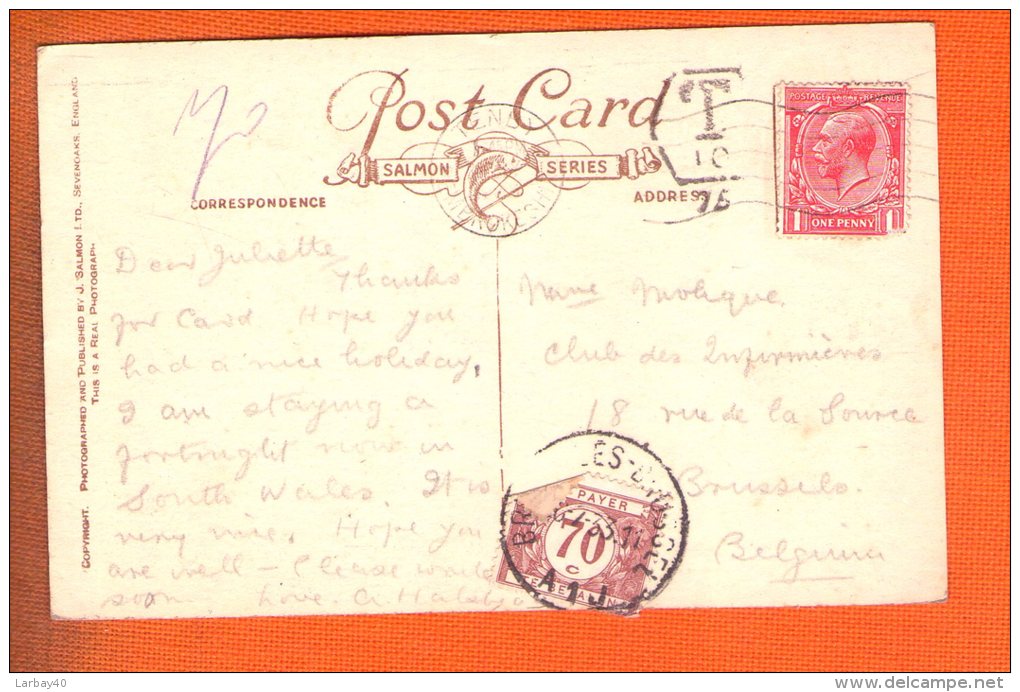 Post Card
SALMON SERIES
CORRESPONDENCE
ADDRESS
COPYRIGHT. PHOTOGRAPHED AND PUBLISHED BY J. SALMON LTD., SEVENOAKS, ENGLAND
THIS IS A REAL PHOTOGRAPH
T
10
POSTAGE REVENUE
1 ONE PENNY 1
Dear Juliette
Thanks
for Card Hope you
had a nice holiday.
I am staying a
fortnight now in
South Wales. It is
very nice. Hope you
are well – Please write
soon Love. A
Club des Infirmières
18 rue de la Source
Brussels.
Belgium
PAYER
70
c
TE BETALEN
A1J
Larbay40
www.delcampe.net